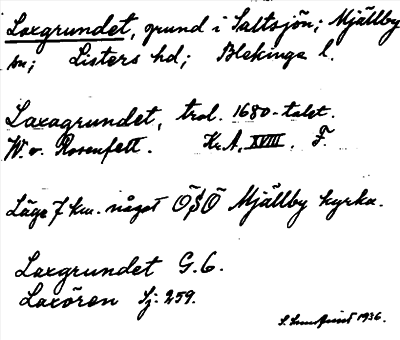 Laxgrundet, grund i Saltsjön; Mjällby
sn; Listers hd; Blekinge l.
Laxagrundet, trol. 1680-talet.
W. v. Rosenfelt. Kr.A. XVIII. F.
Läge 7 km. något ÖSÖ Mjällby kyrka.
Laxgrundet G.6.
Laxören Sj: 259.
1936.